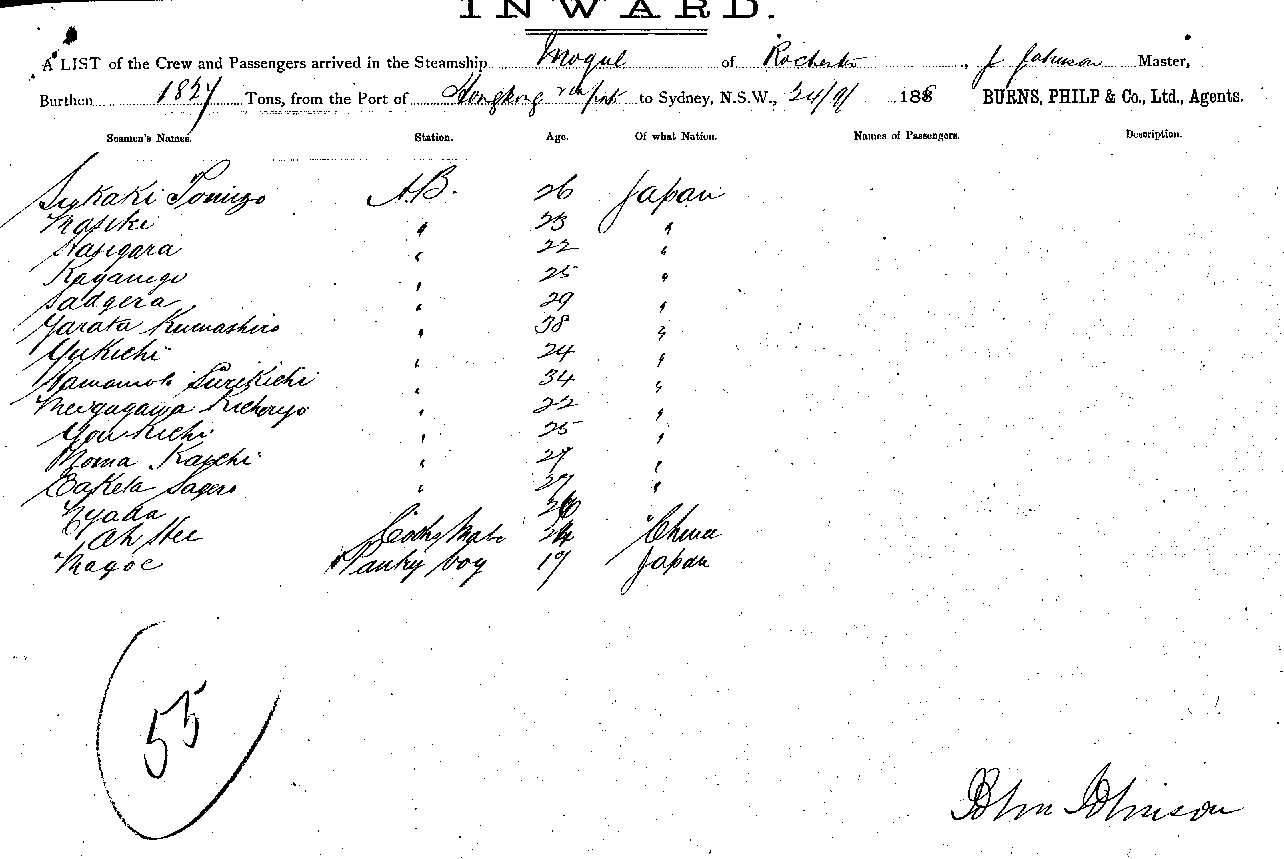 INWARD.
A LIST of the Crew and Passengers arrived in the Steamship Mogul of Rochester, J Johnson Master,
Burthen 1827 Tons, from the Port of Hongkong to Sydney, N.S.W., 24/9/ 188 BURNS, PHILP & Co., Ltd., Agents.
Seamen's Names. Station. Age. Of what Nation. Names of Passengers. Description.
Sukaki Tomizo A.B. 26 Japan
Masuki " 23 "
Hasegara " 22 "
" 25 "
Sadgera " 29 "
Yarata Kumashiro " 38 "
Yukichi " 24 "
Hamamoto Surikichi " 34 "
" 22 "
You Kichi " 25 "
Noma Kaichi " 27 "
Caketa Sagero " 27 "
Eyada
Ah Hee China
Magoe Pantry boy 19 Japan
55
John Johnson